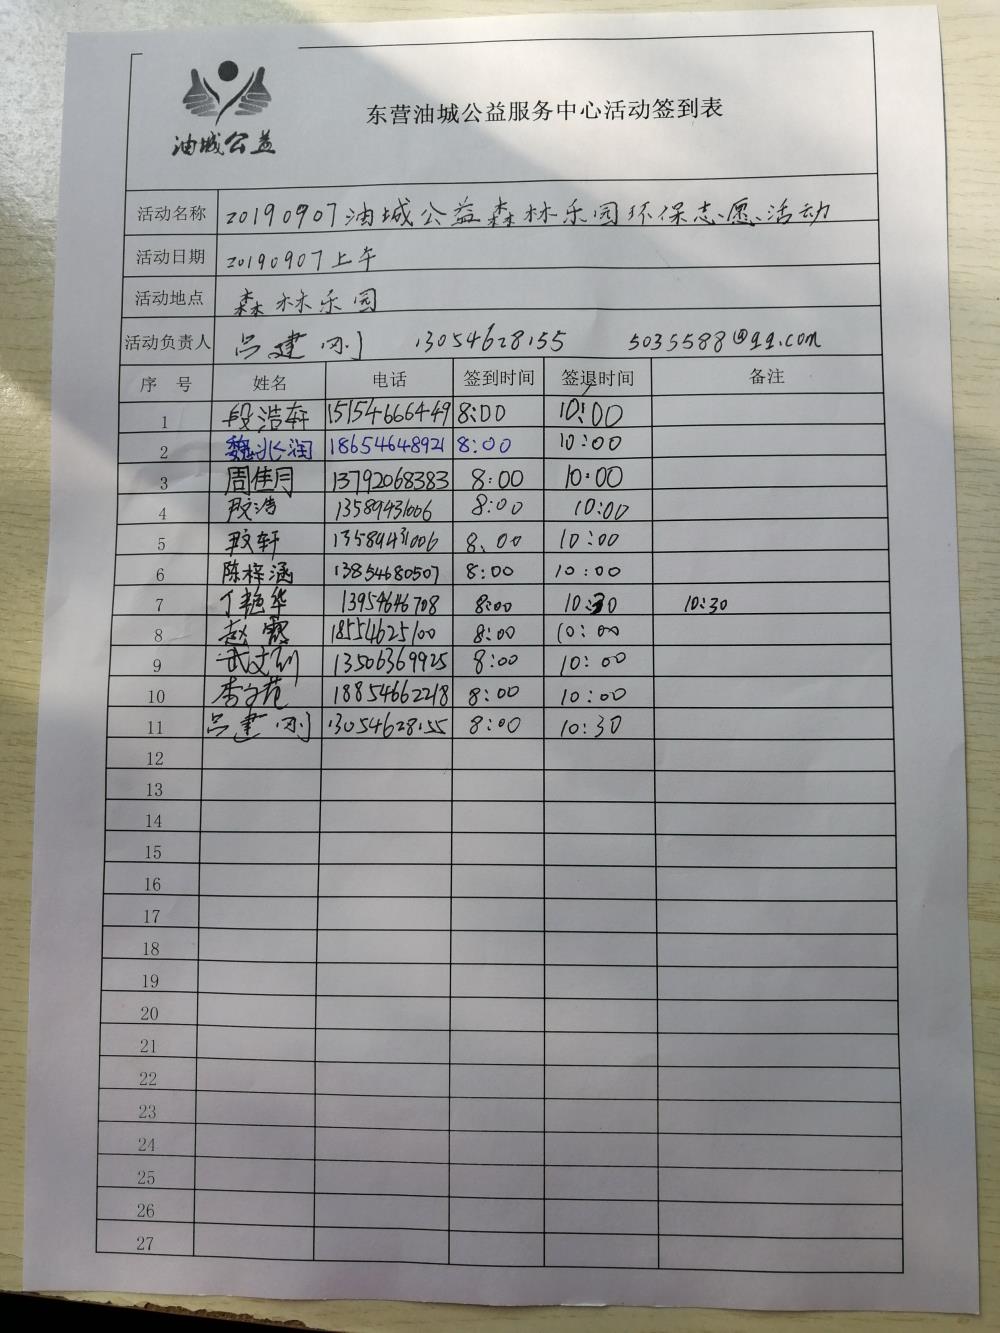 油城公益
东营油城公益服务中心活动签到表
活动名称 20190907油城公益森林乐园环保志愿活动
活动日期 20190907上午
活动地点 森林乐园
活动负责人 吕建刚 13054628155 5035588@qq.com
序 号 姓名 电话 签到时间 签退时间 备注
1 段浩轩 15154666449 8:00 10:00
2 魏兆润 18654648921 8:00 10:00
3 周佳月 13792068383 8:00 10:00
4 段浩 13589431006 8:00 10:00
5 段轩 13589431006 8:00 10:00
6 陈梓涵 13854680507 8:00 10:00
7 丁艳华 13954646708 8:00 10:30 10:30
8 赵霞 18554625100 8:00 10:00
9 武文剑 13506369925 8:00 10:00
10 李文苑 18854662218 8:00 10:00
11 吕建刚 13054628155 8:00 10:30
12
13
14
15
16
17
18
19
20
21
22
23
24
25
26
27